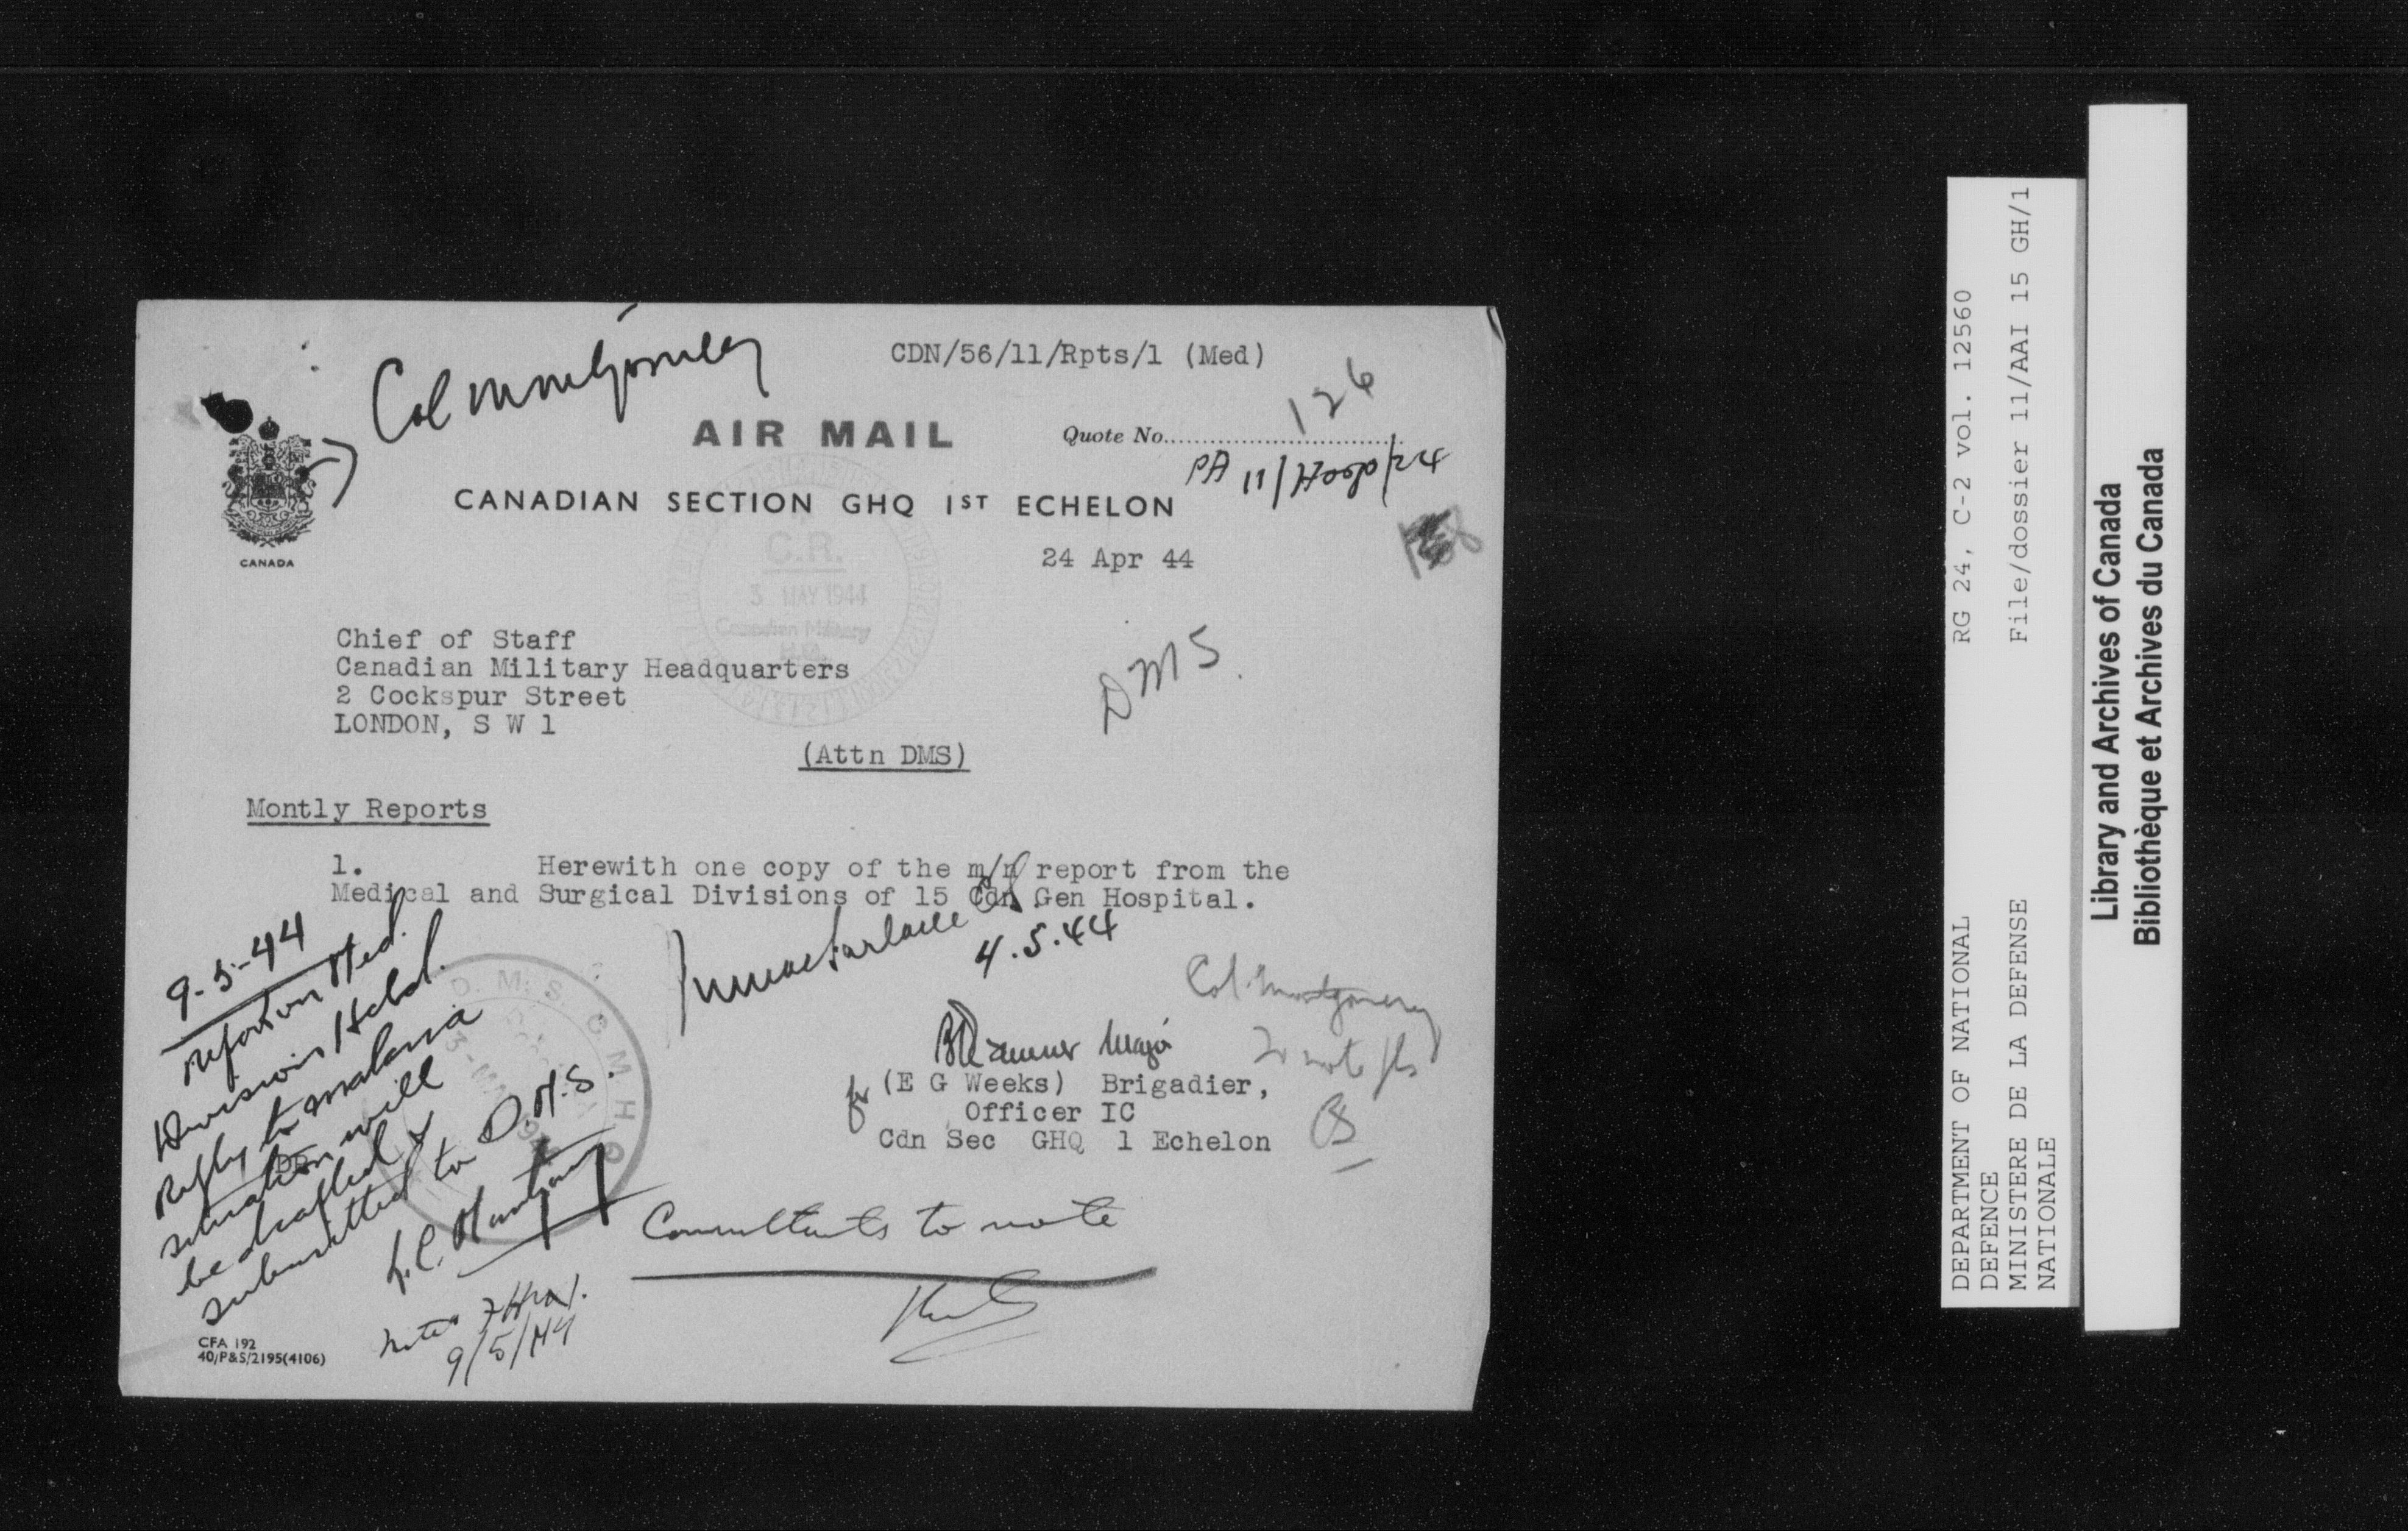 Col Montgomery
CDN/56/11/Rpts/1 (Med)
126
AIR MAIL
Quote No.
PA 11/Hosp/24
CANADA
CANADIAN SECTION GHQ 1ST ECHELON
C.R.
3 MAY 1944
Canadian Military
24 Apr 44
Chief of Staff
Canadian Military Headquarters
2 Cockspur Street
LONDON, S W 1
DMS.
(Attn DMS)
Montly Reports
1. Herewith one copy of the m/n report from the
Medical and Surgical Divisions of 15 Cdn Gen Hospital.
4.5.44
Col. Montgomery
to note pls
Major
for (E G Weeks) Brigadier,
Officer IC
Cdn Sec GHQ 1 Echelon
D. M. S. C. M. H. Q.
3-MAY 194
9-5-44
report on Med.
Division Held.
Reply to malaria
situation will
be drafted &
submitted to D.M.S.
DR
Consultants to note
Noted
9/5/44
CFA 192
40/P&S/2195(4106)
DEPARTMENT OF NATIONAL
DEFENCE
MINISTERE DE LA DEFENSE
NATIONALE
RG 24, C-2 vol. 12560
File/dossier 11/AAI 15 GH/1
Library and Archives of Canada
Bibliothèque et Archives du Canada